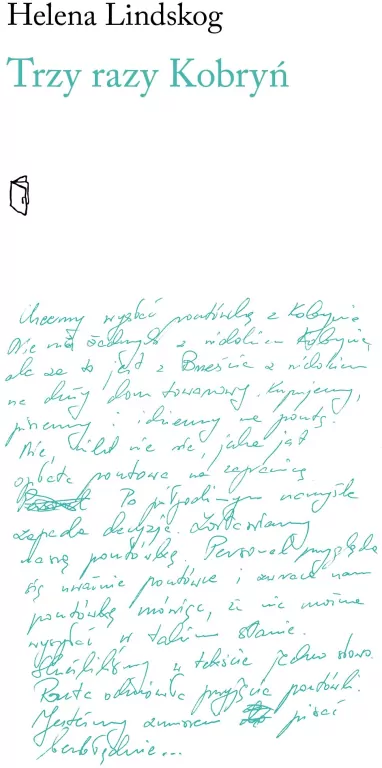 Helena Lindskog
Trzy razy Kobryń
Chcemy wysłać pocztówkę z Kobrynia
Nie ma żadnych z widokiem Kobrynia,
ale za to jest z Brześcia z widokiem
na duży dom towarowy. Kupujemy,
piszemy i idziemy na pocztę.
Nie, nikt nie wie, jaka jest
opłata pocztowa za zagranicę.
Po półgodzinnym namyśle
zapada decyzja. Zostawiamy
naszą pocztówkę. Personel przygląda
się uważnie pocztówce i zwraca nam
pocztówkę mówiąc, że nie można
wysyłać w takim stanie.
Skreśliliśmy w tekście jedno słowo.
Poczta odmówiła przyjęcia pocztówki.
Jesteśmy zmuszeni pisać
bezbłędnie...